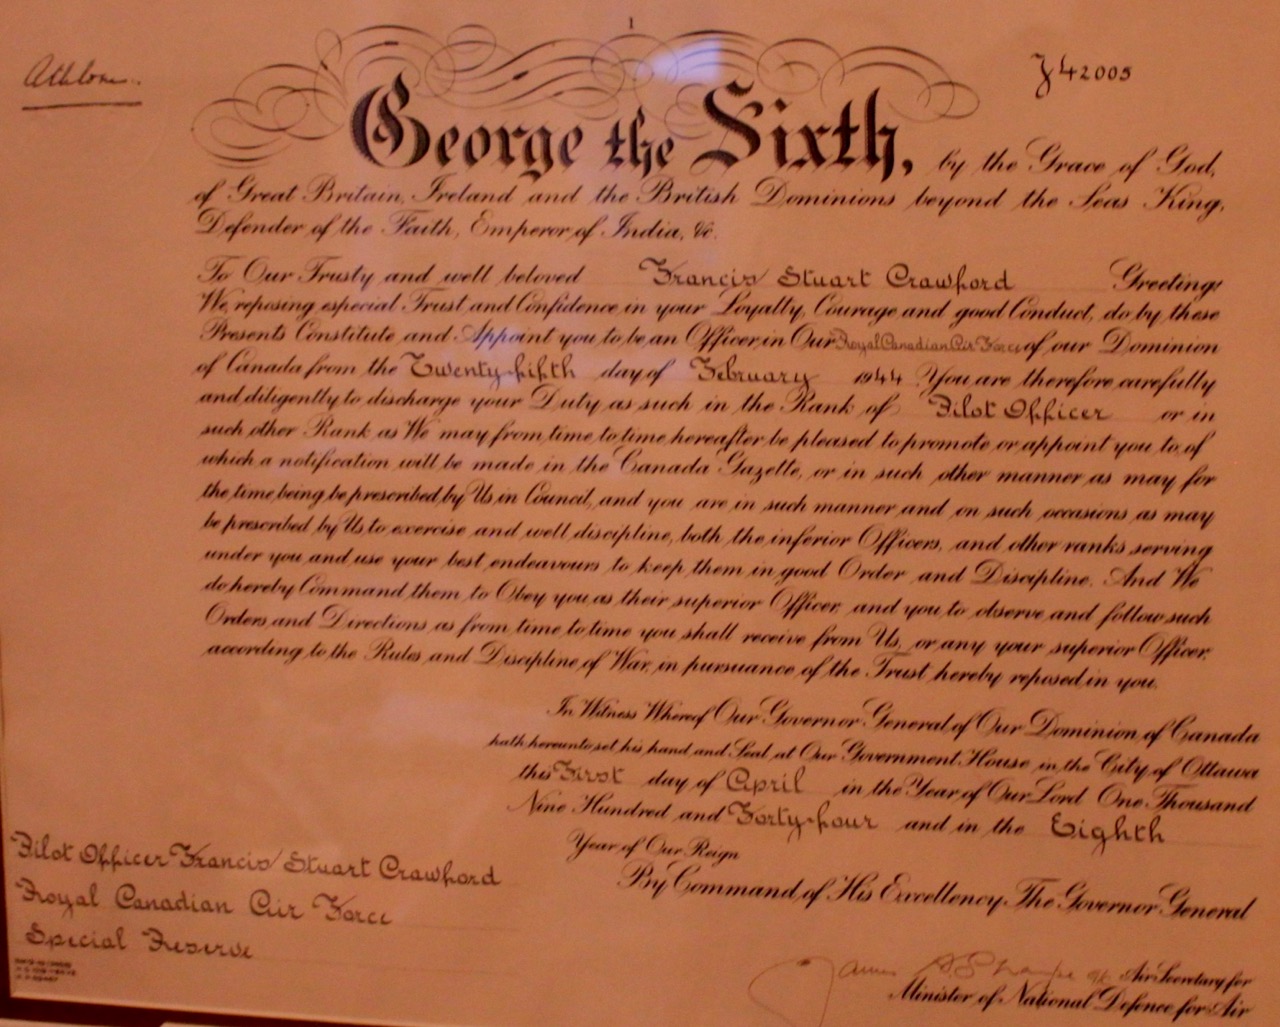 1
Athlone.
J42005
George the Sixth, by the Grace of God,
of Great Britain, Ireland and the British Dominions beyond the Seas King,
Defender of the Faith, Emperor of India, &c.
To Our Trusty and well beloved Francis Stuart Crawford Greeting:
We, reposing especial Trust and Confidence in your Loyalty, Courage and good Conduct, do by these
Presents Constitute and Appoint you to be an Officer in Our Royal Canadian Air Force of our Dominion
of Canada from the Twenty-fifth day of February 1944 You are therefore carefully
and diligently to discharge your Duty as such in the Rank of Pilot Officer or in
such other Rank as We may from time to time hereafter be pleased to promote or appoint you to of
which a notification will be made in the Canada Gazette, or in such other manner as may for
the time being be prescribed by Us in Council, and you are in such manner and on such occasions as may
be prescribed by Us to exercise and well discipline, both the inferior Officers, and other ranks serving
under you and use your best endeavours to keep them in good Order and Discipline. And We
do hereby Command them to Obey you as their superior Officer, and you to observe and follow such
Orders and Directions as from time to time you shall receive from Us, or any your superior Officer,
according to the Rules and Discipline of War, in pursuance of the Trust hereby reposed in you.
In Witness Whereof Our Governor General of Our Dominion of Canada
hath hereunto set his hand and Seal at Our Government House in the City of Ottawa
this First day of April in the Year of Our Lord One Thousand
Nine Hundred and Forty-four and in the Eighth
Year of Our Reign
By Command of His Excellency The Governor General
Pilot Officer Francis Stuart Crawford
Royal Canadian Air Force
Special Reserve
James Air Secretary for
Minister of National Defence for Air